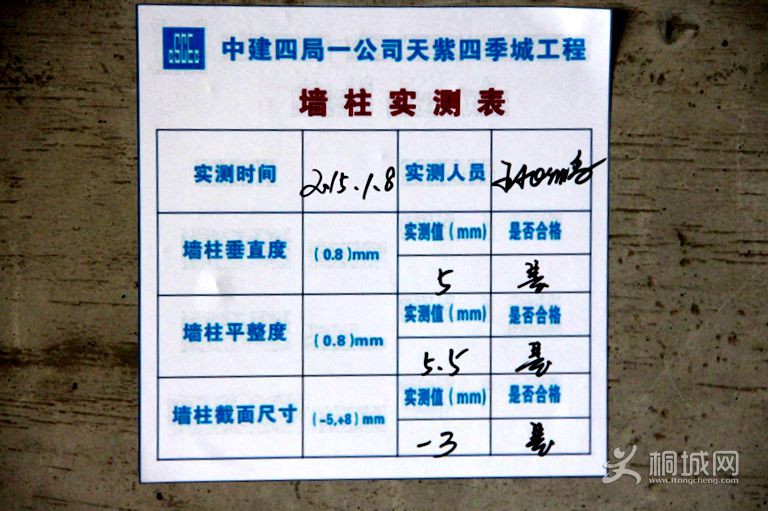 CSCEC
中建四局一公司天紫四季城工程
墙柱实测表
实测时间 2015.1.8 实测人员
墙柱垂直度 (0.8)mm 实测值(mm) 是否合格
5 是
墙柱平整度 (0.8)mm 实测值(mm) 是否合格
5.5 是
墙柱截面尺寸 (-5,+8)mm 实测值(mm) 是否合格
-3 是
桐城网
www.itongcheng.com